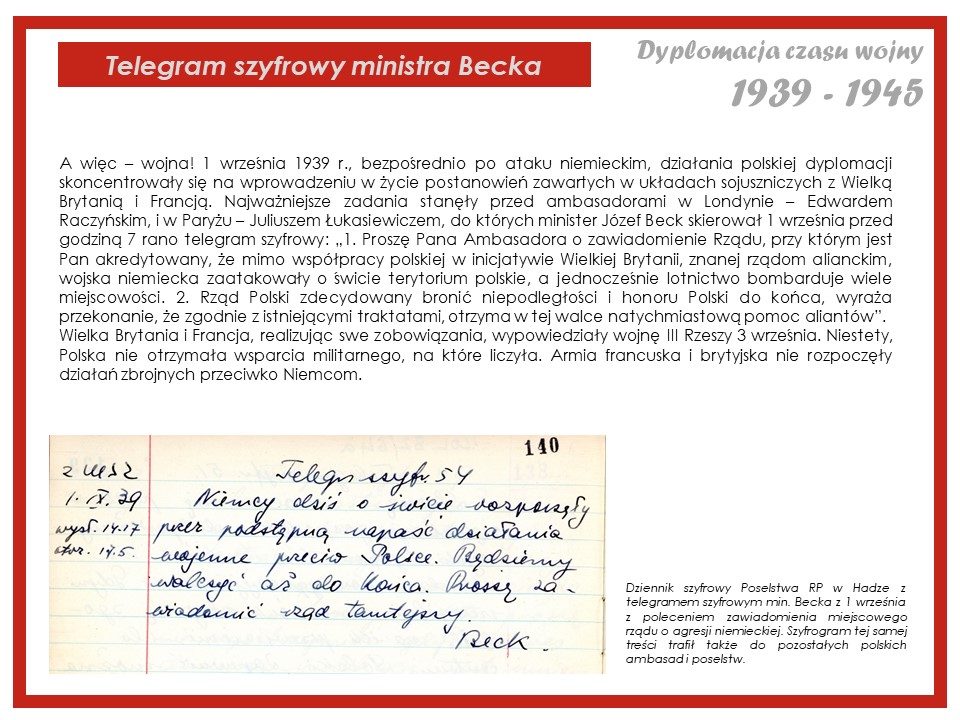 Telegram szyfrowy ministra Becka
Dyplomacja czasu wojny
1939 - 1945
A więc – wojna! 1 września 1939 r., bezpośrednio po ataku niemieckim, działania polskiej dyplomacji
skoncentrowały się na wprowadzeniu w życie postanowień zawartych w układach sojuszniczych z Wielką
Brytanią i Francją. Najważniejsze zadania stanęły przed ambasadorami w Londynie – Edwardem
Raczyńskim, i w Paryżu – Juliuszem Łukasiewiczem, do których minister Józef Beck skierował 1 września przed
godziną 7 rano telegram szyfrowy: „1. Proszę Pana Ambasadora o zawiadomienie Rządu, przy którym jest
Pan akredytowany, że mimo współpracy polskiej w inicjatywie Wielkiej Brytanii, znanej rządom alianckim,
wojska niemiecka zaatakowały o świcie terytorium polskie, a jednocześnie lotnictwo bombarduje wiele
miejscowości. 2. Rząd Polski zdecydowany bronić niepodległości i honoru Polski do końca, wyraża
przekonanie, że zgodnie z istniejącymi traktatami, otrzyma w tej walce natychmiastową pomoc aliantów”.
Wielka Brytania i Francja, realizując swe zobowiązania, wypowiedziały wojnę III Rzeszy 3 września. Niestety,
Polska nie otrzymała wsparcia militarnego, na które liczyła. Armia francuska i brytyjska nie rozpoczęły
działań zbrojnych przeciwko Niemcom.
140
z MSZ
1. IX. 39
wysł. 14.17
otrz. 14.5.
Telegr. szyfr. 54
Niemcy dziś o świcie rozpoczęły
przez podstępną napaść działania
wojenne przeciw Polsce. Będziemy
walczyć aż do końca. Proszę za-
wiadomić rząd tamtejszy.
Beck.
Dziennik szyfrowy Poselstwa RP w Hadze z
telegramem szyfrowym min. Becka z 1 września
z poleceniem zawiadomienia miejscowego
rządu o agresji niemieckiej. Szyfrogram tej samej
treści trafił także do pozostałych polskich
ambasad i poselstw.